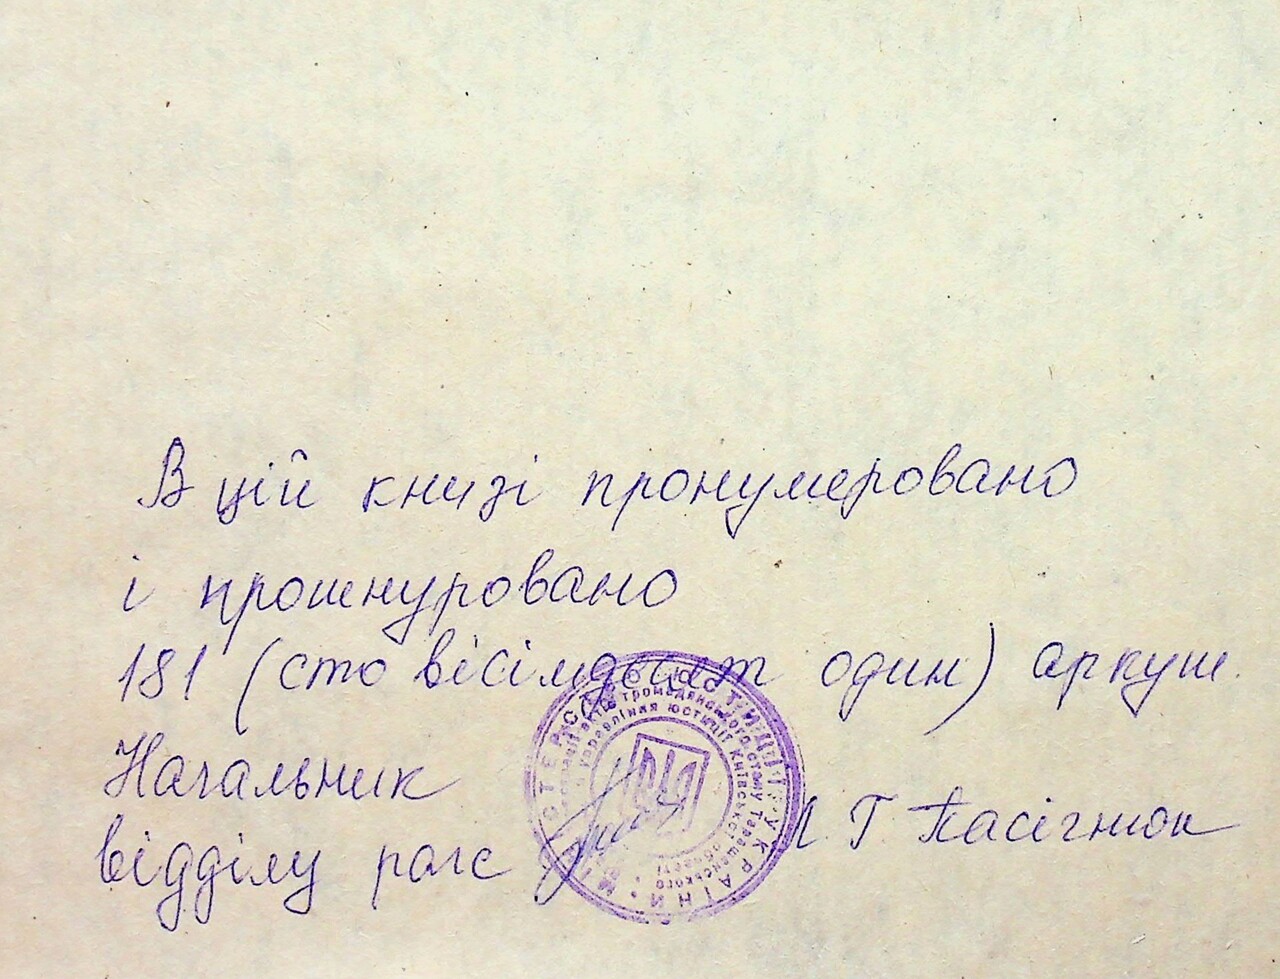 В цій книзі пронумеровано
і прошнуровано
181 (сто вісімдесят один) аркуш.
Начальник
відділу рагс Л Г Пасігнюк
МІНІСТЕРСТВО ЮСТИЦІЇ УКРАЇНИ
реєстрації актів громадянського стану Таращанського
управління юстиції Київської області